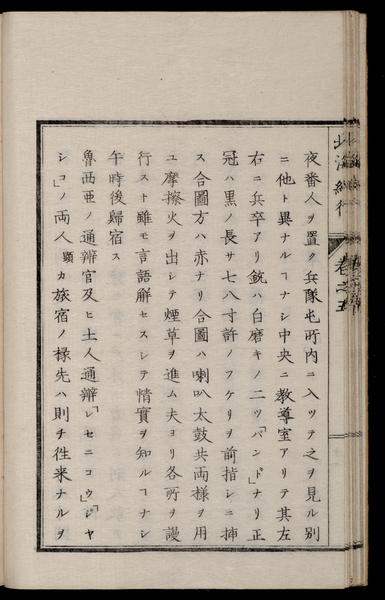 北海紀行 巻之五
夜番人ヲ置ク兵隊屯所内ニ入ツテ之ヲ見ル別
ニ他ト異ナルヿナシ中央ニ教導室アリテ其左
右ニ兵卒アリ銃ハ白磨キノ二ツ「バンド」ナリ正
冠ハ黒ノ長サ七八寸許ノフケリヲ前指シニ挿
ス合圖方ハ赤ナリ合圖ハ喇叭太鼓共両様ヲ用
ユ摩擦火ヲ出シテ煙草ヲ進ム夫ヨリ各所ヲ謾
行スト雖モ言語解セスシテ情實ヲ知ルヿナシ
午時後歸宿ス
魯西亜ノ通辯官及ヒ土人通辯「セニコウ」「ジヤ
シコ」ノ両人顕カ旅宿ノ椽先ハ則チ徃来ナルヲ